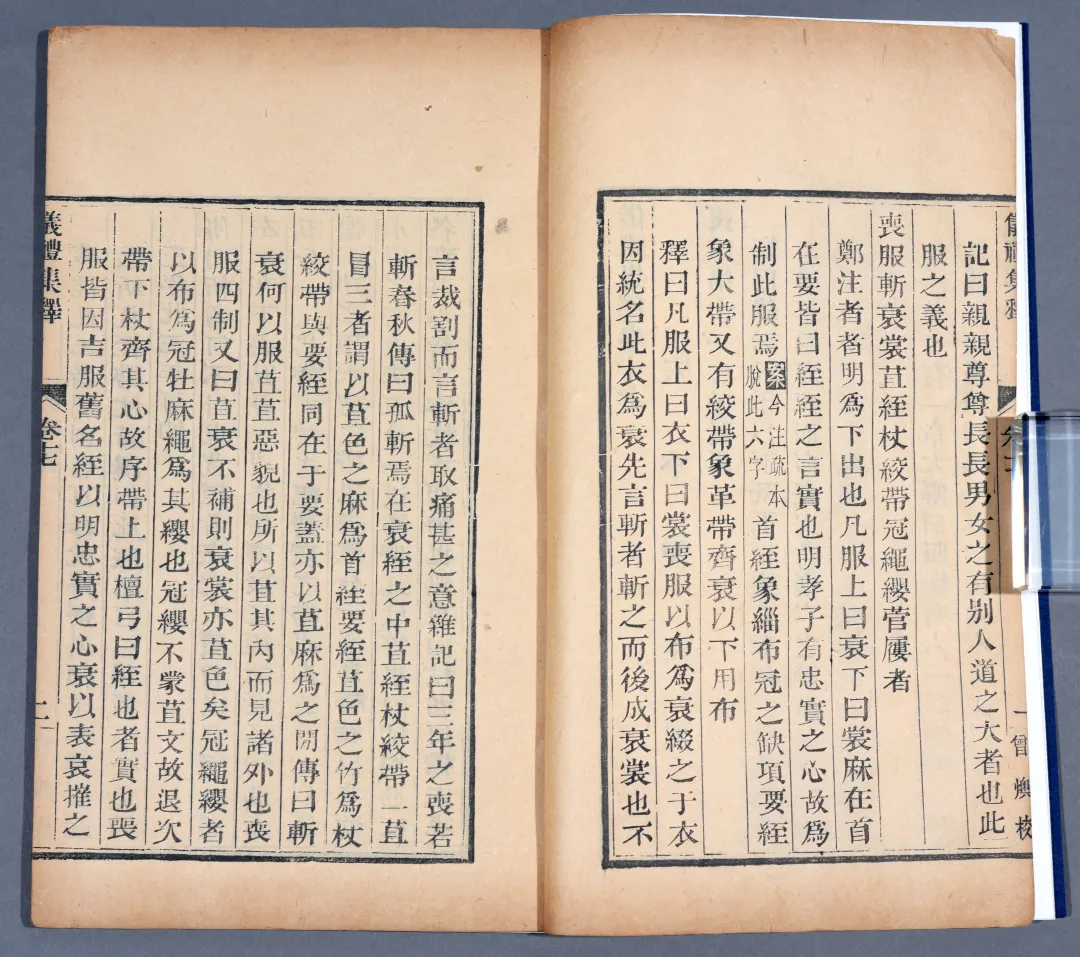 記曰親親尊尊長長男女之有别人道之大者也此
服之義也
喪服斬衰裳苴絰杖絞帶冠繩纓菅屨者
鄭注者者明爲下出也凡服上曰衰下曰裳麻在首
在要皆曰絰絰之言實也明孝子有忠實之心故爲
制此服焉案今注疏本脫此六字首絰象緇布冠之缺項要絰
象大帶又有絞帶象革帶齊衰以下用布
釋曰凡服上曰衣下曰裳喪服以布爲衰綴之于衣
因統名此衣爲衰先言斬者斬之而後成衰裳也不
言裁割而言斬者取痛甚之意雜記曰三年之喪若
斬春秋傳曰孤斬焉在衰絰之中苴絰杖絞帶一苴
冒三者謂以苴色之麻爲首絰要絰苴色之竹爲杖
絞帶與要絰同在于要蓋亦以苴麻爲之閒傳曰斬
衰何以服苴苴惡貌也所以苴其內而見諸外也喪
服四制又曰苴衰不補則衰裳亦苴色矣冠繩纓者
以布爲冠牡麻繩爲其纓也冠纓不蒙苴文故退次
帶下杖齊其心故序帶上也檀弓曰絰也者實也喪
服皆因吉服舊名絰以明忠實之心衰以表哀摧之
儀禮集釋
卷十七
二
儀禮集釋
一
曾燠校